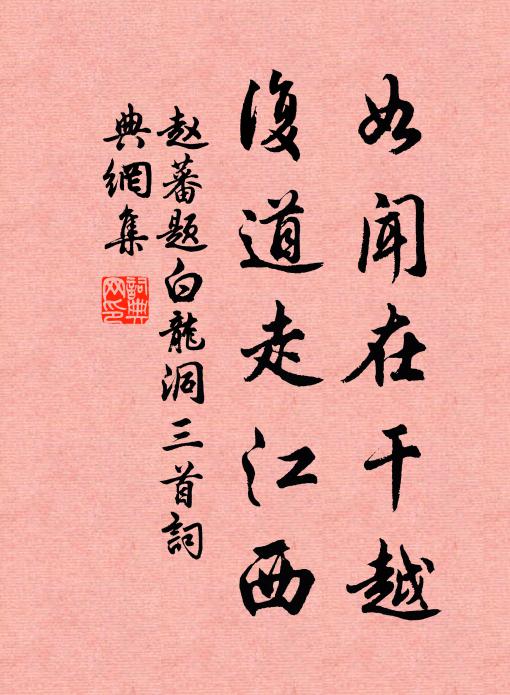 如闻在干越
復道走江西
赵蕃题白龍洞三首詞
典網集
詞典
网印